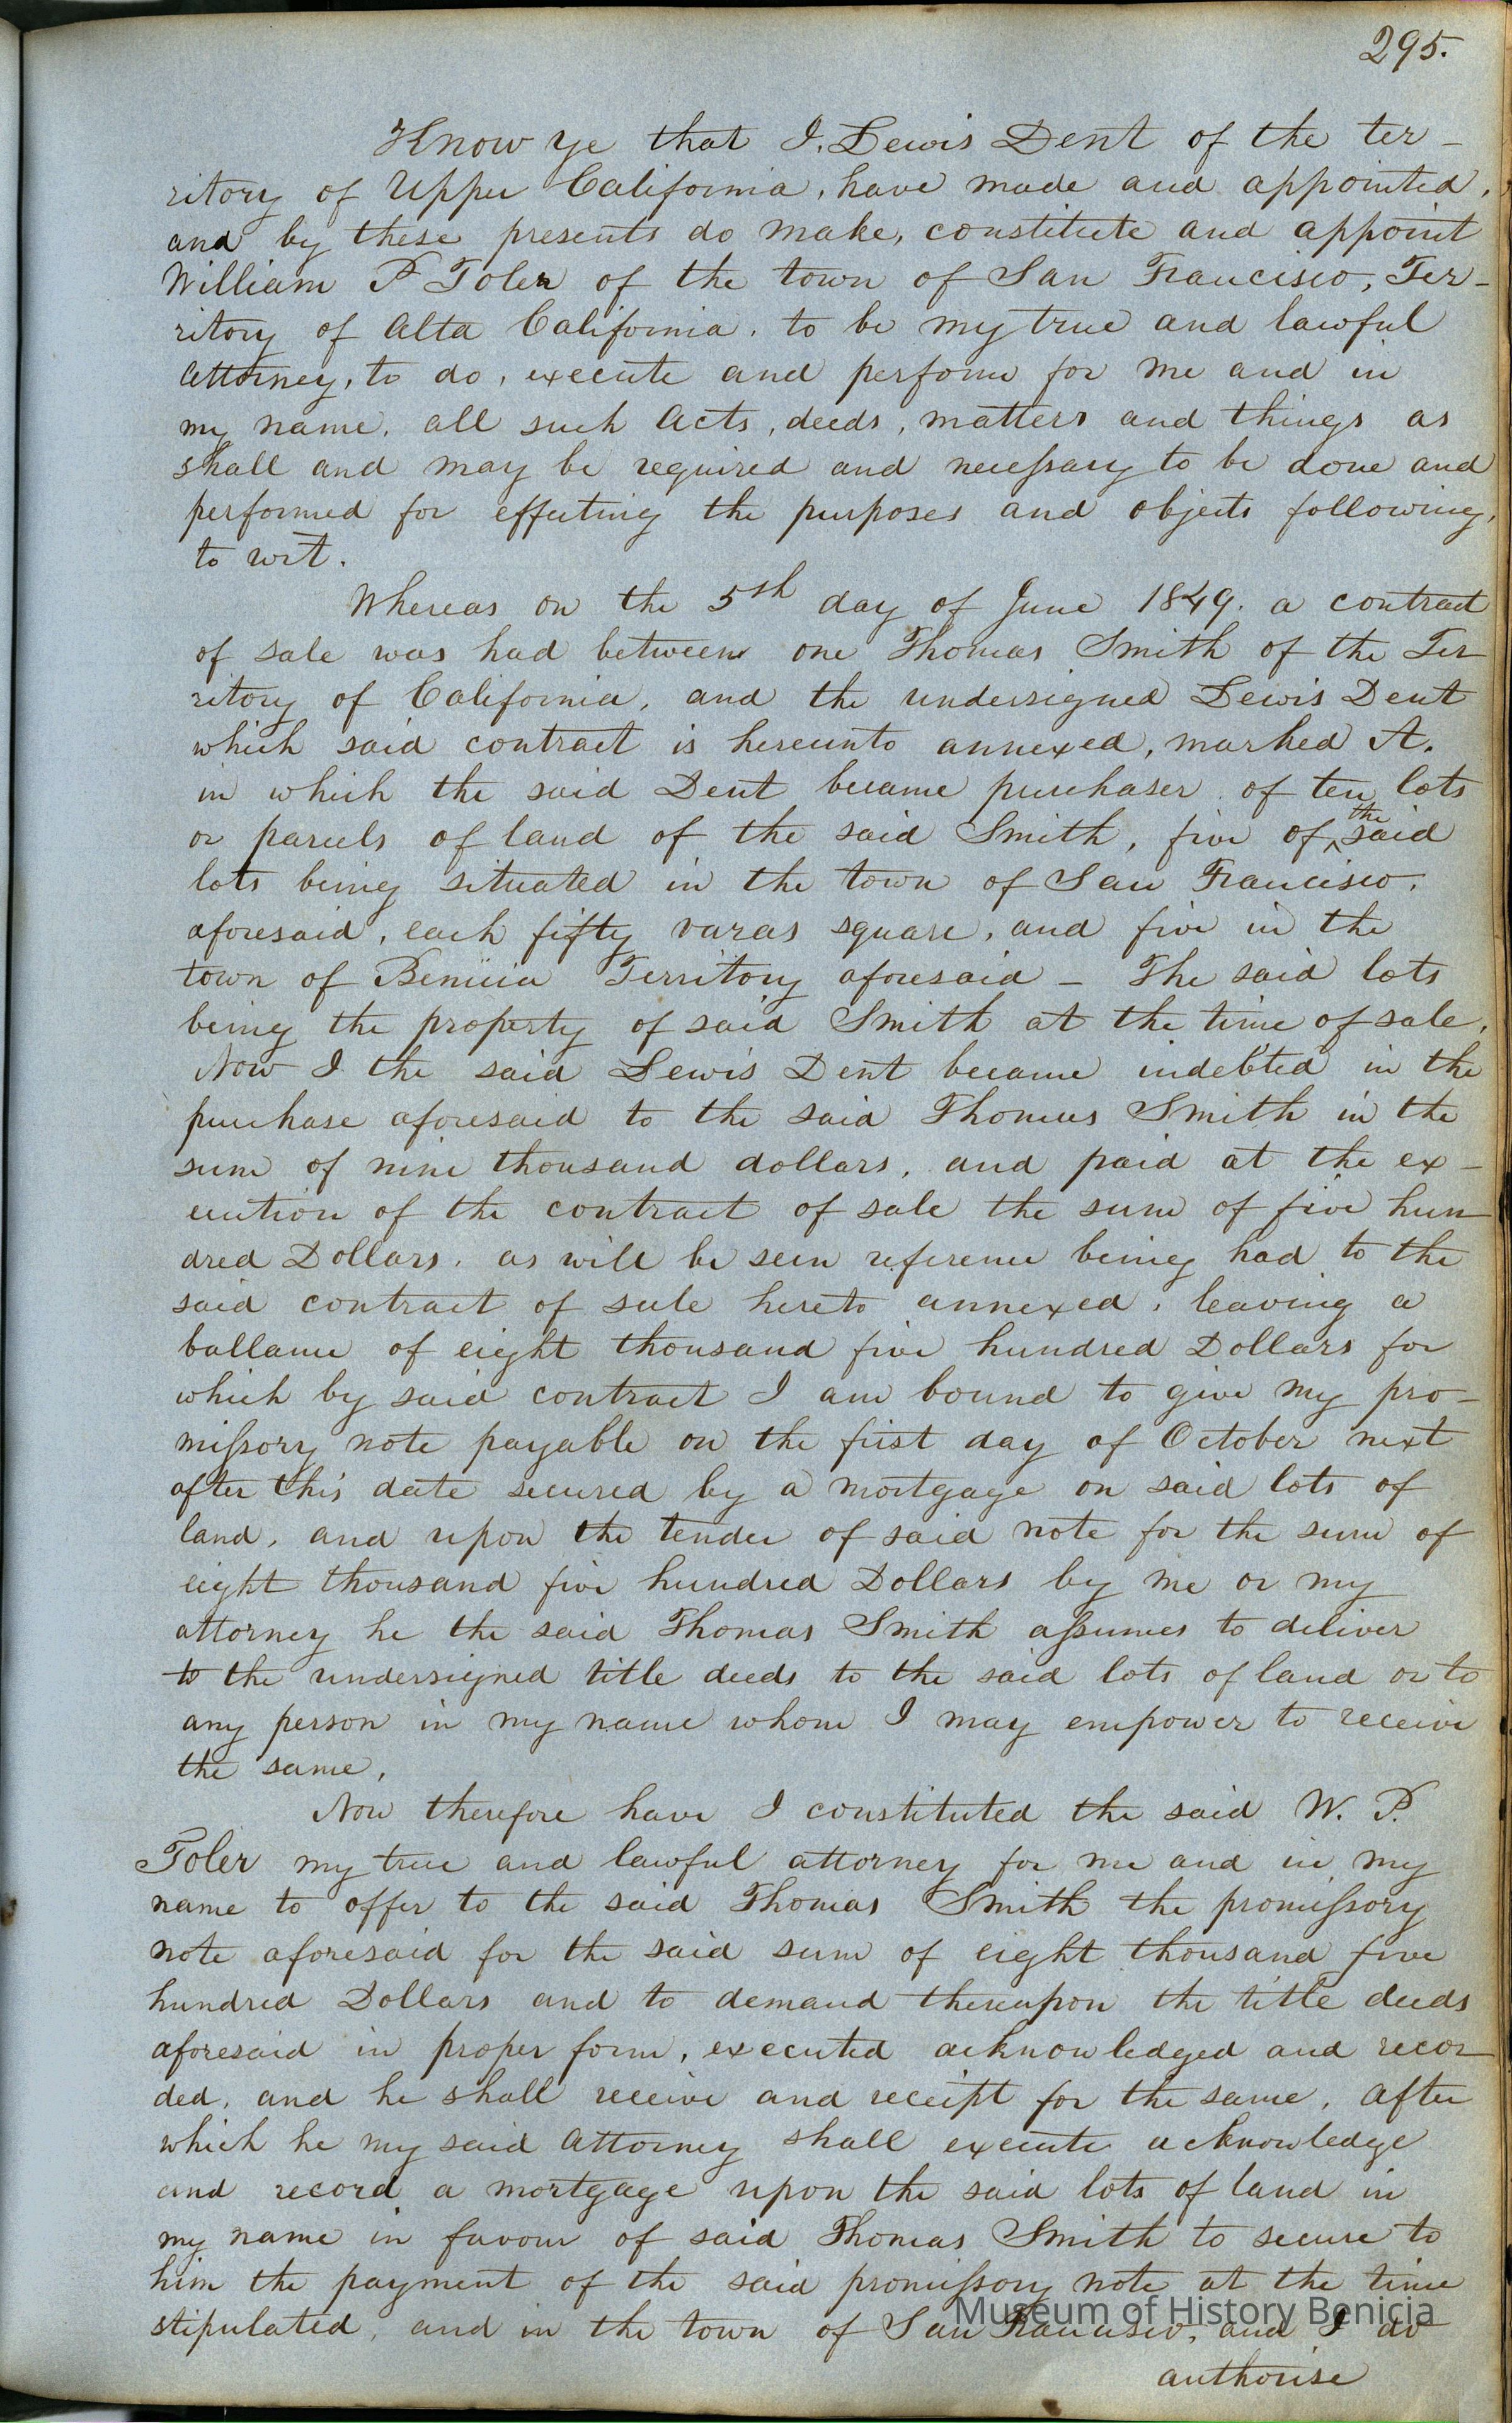 295.
Know ye that I, Lewis Dent of the ter-
ritory of Upper California, have made and appointed,
and by these presents do make, constitute and appoint
William P Toler of the town of San Francisco, Ter-
ritory of Alta California, to be my true and lawful
Attorney, to do, execute and perform for me and in
my name, all such acts, deeds, matters and things as
shall and may be required and necessary to be done and
performed for effecting the purposes and objects following,
to wit.
Whereas on the 5th day of June 1849. a contract
of sale was had between one Thomas Smith of the Ter
ritory of California, and the undersigned Lewis Dent
which said contract is hereunto annexed, marked A.
in which the said Dent became purchaser of ten lots
or parcels of land of the said Smith, five of the said
lots being situated in the town of San Francisco,
aforesaid, each fifty varas square, and five in the
town of Benicia Territory aforesaid - The said lots
being the property of said Smith at the time of sale,
Now I the said Lewis Dent became indebted in the
purchase aforesaid to the said Thomas Smith in the
sum of nine thousand dollars, and paid at the ex-
ecution of the contract of sale the sum of five hun
dred Dollars, as will be seen reference being had to the
said contract of sale hereto annexed, leaving a
ballance of eight thousand five hundred Dollars for
which by said contract I am bound to give my pro-
missory note payable on the first day of October next
after this date secured by a mortgage on said lots of
land, and upon the tender of said note for the sum of
eight thousand five hundred Dollars by me or my
attorney he the said Thomas Smith assumes to deliver
to the undersigned title deeds to the said lots of land or to
any person in my name whom I may empower to receive
the same,
Now therefore have I constituted the said W. P.
Toler my true and lawful attorney for me and in my
name to offer to the said Thomas Smith the promissory
note aforesaid for the said sum of eight thousand five
hundred Dollars and to demand thereupon the title deeds
aforesaid in proper form, executed acknowledged and recor
ded, and he shall receive and receipt for the same, after
which he my said Attorney shall execute acknowledge
and record a mortgage upon the said lots of land in
my name in favour of said Thomas Smith to secure to
him the payment of the said promissory note at the time
stipulated, and in the town of San Francisco, and I do
authorise
Museum of History Benicia